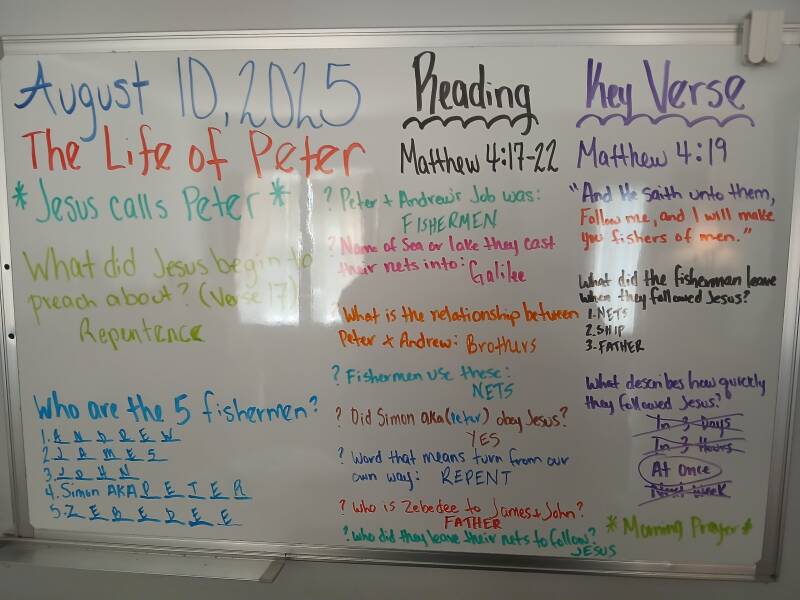 August 10, 2025
The Life of Peter
*Jesus calls Peter*
What did Jesus begin to
preach about? (Verse 17)
Repentence
Who are the 5 fishermen?
1. ANDREW
2. JAMES
3. JOHN
4. Simon AKA PETER
5. ZEBEDEE
Reading
Matthew 4:17-22
? Peter + Andrew's Job was:
FISHERMEN
? Name of Sea or lake they cast
their nets into: Galilee
? What is the relationship between
Peter + Andrew: Brothers
? Fishermen use these:
NETS
? Did Simon aka (Peter) obey Jesus?
YES
? Word that means turn from our
own way: REPENT
? Who is Zebedee to James + John?
FATHER
? Who did they leave their nets to follow?
JESUS
Key Verse
Matthew 4:19
"And He saith unto them,
Follow me, and I will make
you fishers of men."
What did the fisherman leave
when they followed Jesus?
1. NETS
2. SHIP
3. FATHER
What describes how quickly
they followed Jesus?
In 3 Days
In 3 Hours
At Once
Next week
*Morning Prayer*